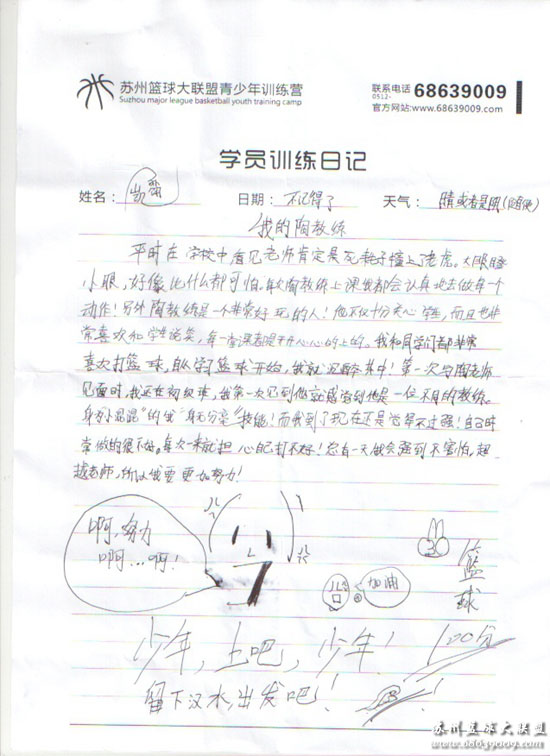 苏州篮球大联盟青少年训练营
Suzhou major league basketball youth training camp
联系电话 0512- 68639009
官方网站:www.68639009.com
学员训练日记
姓名: 日期: 不记得了 天气: 晴或者是阴(随便)
《我的陶教练
平时在学校中看见老师肯定是死耗子撞上了老虎。大眼瞪
小眼,好像比什么都可怕。教练上课我都会认真地去做每一个
动作!另外陶教练是一个非常好玩的人!他不仅十分关心学生,而且也非
常喜欢和学生说笑,每一堂课都是开开心心的上的。我和同学们都非常
喜欢打篮球,自从学了篮球开始,我就沉醉其中!第一次与陶老师
见面时,我还在初级班,我第一次见到他就感觉到他是一位不同的教练。
身为"混混"的我身无分毫技能!而我到了现在还是觉得不过强!自己时
常做的很不好。每次一来就担心自己打不好!总有一天我会强到不害怕,超
越老师,所以我要更加努力!
啊,努力
啊...啊!
加油
篮球
少年,上吧,少年!
120分
留下汗水,出发吧!
苏州篮球大联盟